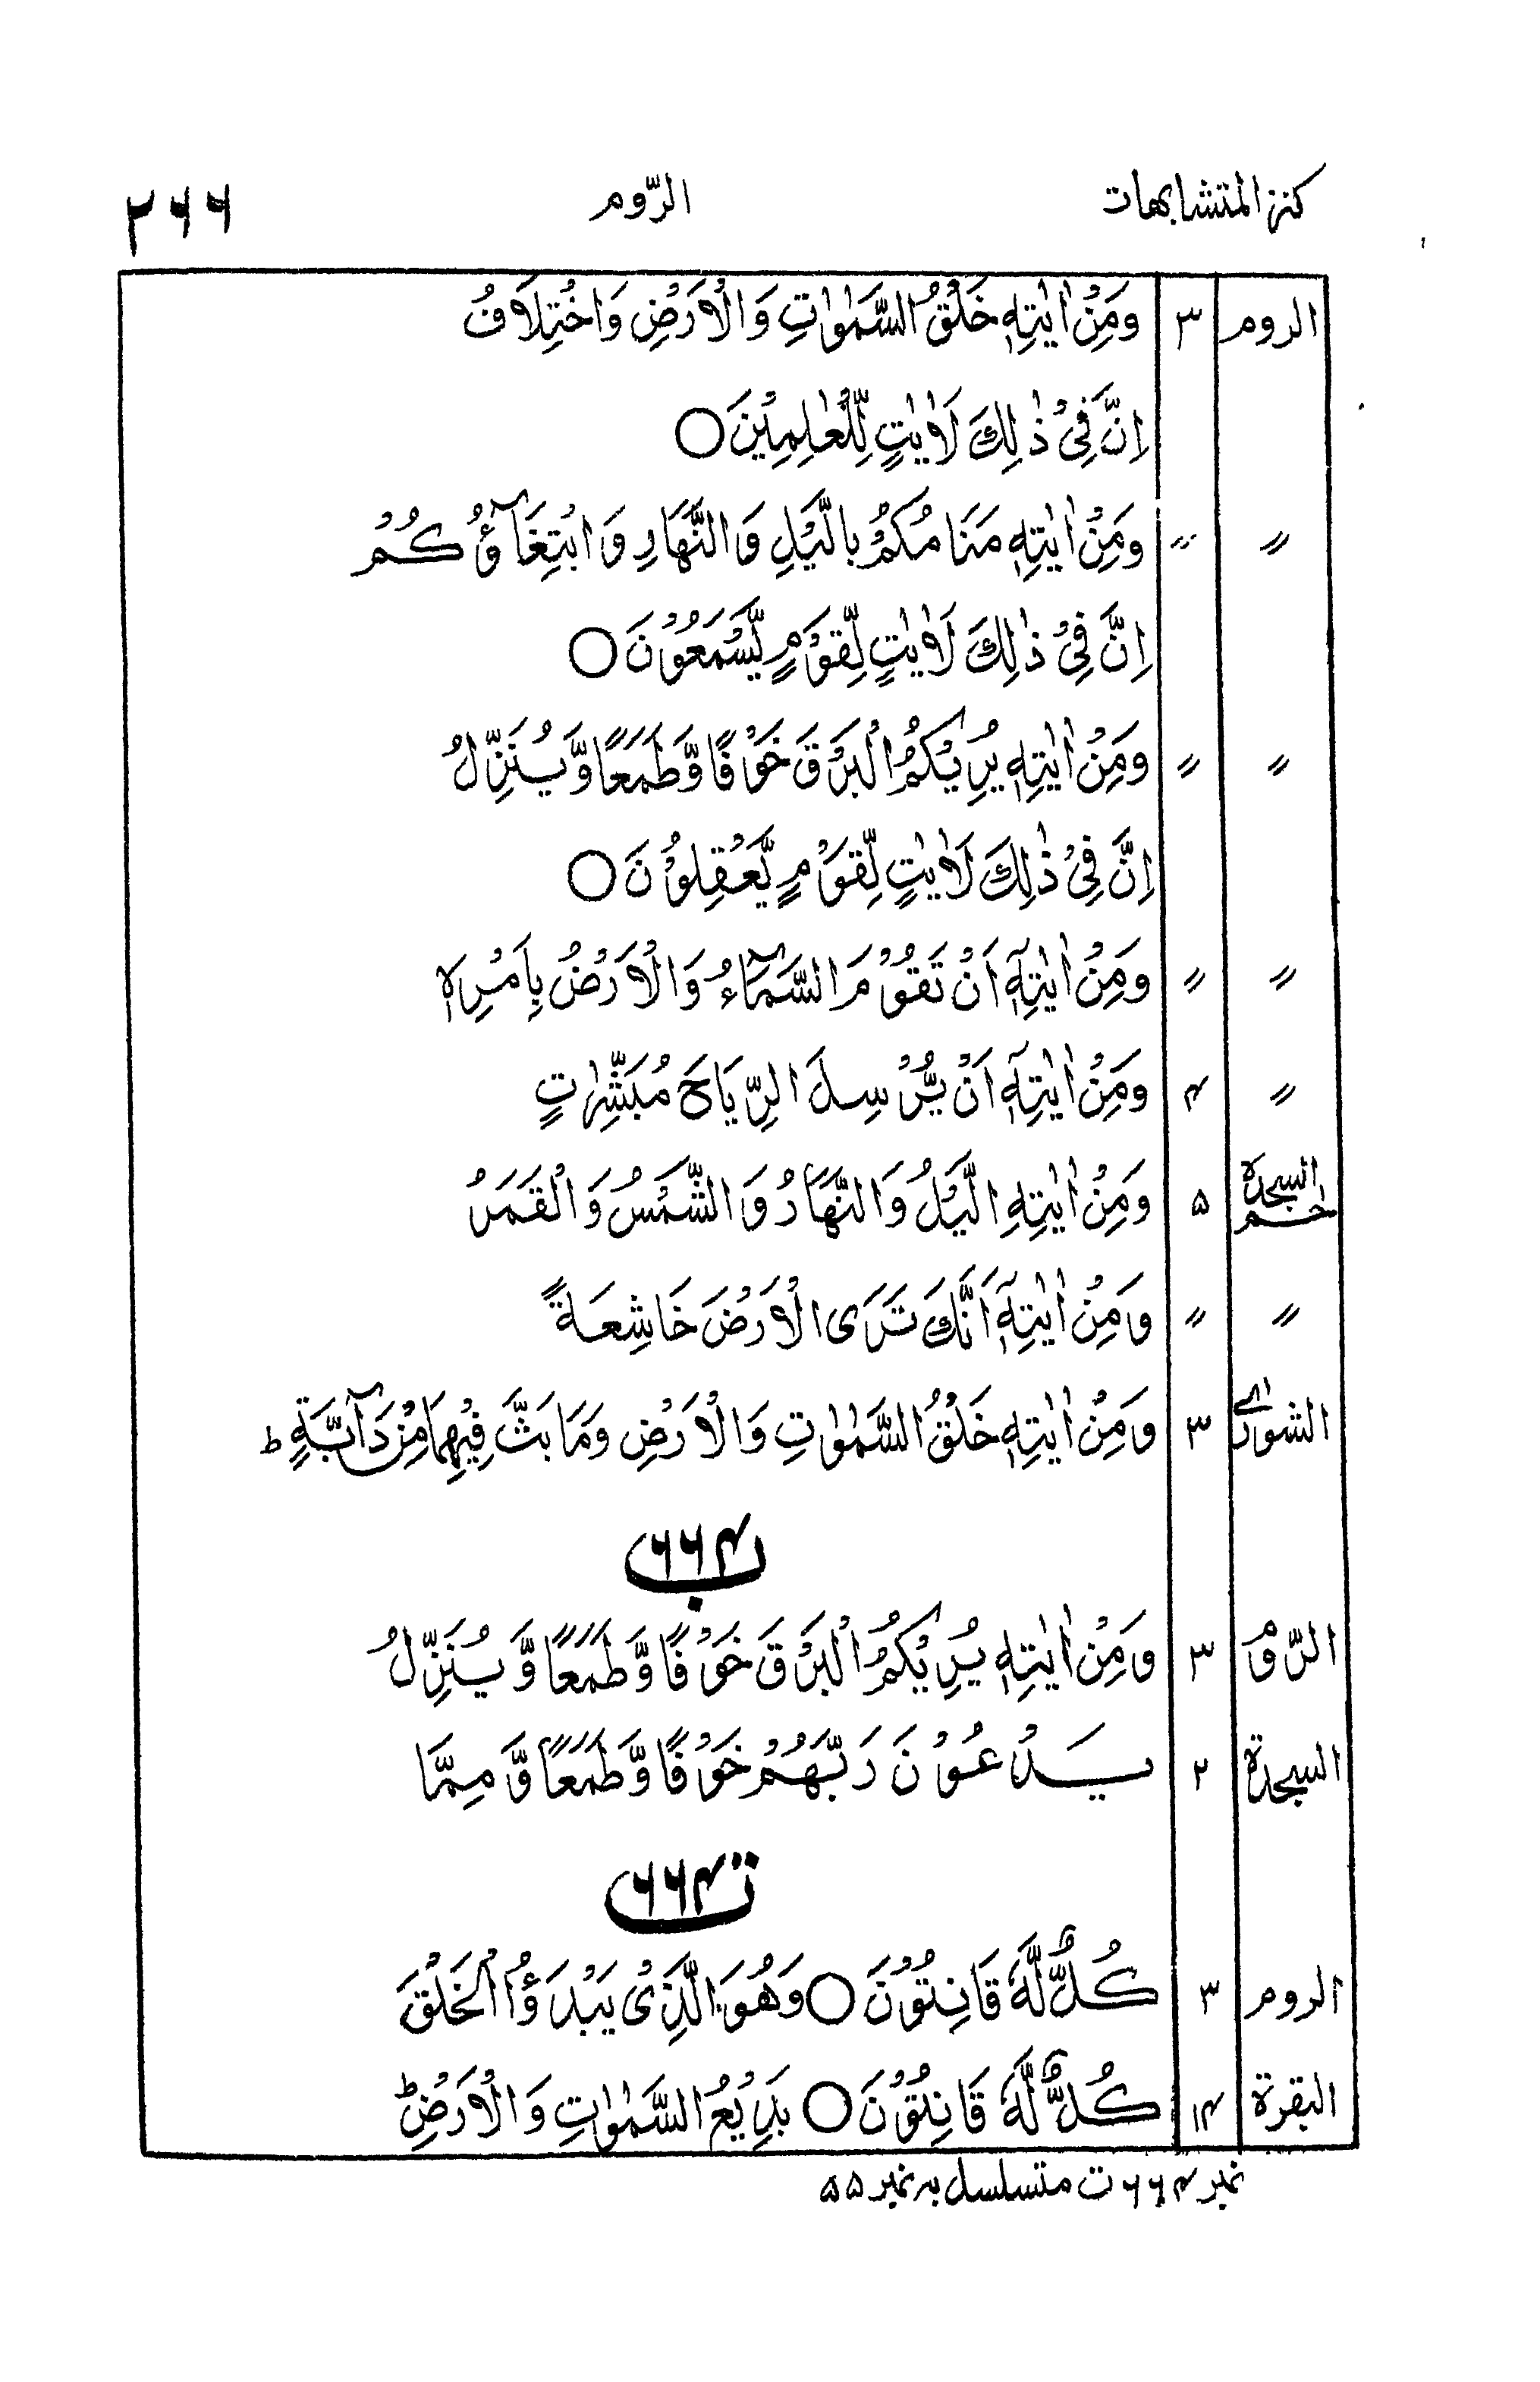 كنز المتشابهات الرّوم ٢٦٦
الروم ٣ وَمِنْ اٰيٰتِهٖ خَلْقُ السَّمٰوٰتِ وَالْاَرْضِ وَاخْتِلَافُ
اِنَّ فِيْ ذٰلِكَ لَاٰيٰتٍ لِّلْعٰلِمِيْنَ ○
〃 〃 وَمِنْ اٰيٰتِهٖ مَنَامُكُمْ بِالَّيْلِ وَالنَّهَارِ وَابْتِغَآؤُكُمْ
اِنَّ فِيْ ذٰلِكَ لَاٰيٰتٍ لِّقَوْمٍ يَّسْمَعُوْنَ ○
〃 〃 وَمِنْ اٰيٰتِهٖ يُرِيْكُمُ الْبَرْقَ خَوْفًا وَّطَمَعًا وَّيُنَزِّلُ
اِنَّ فِيْ ذٰلِكَ لَاٰيٰتٍ لِّقَوْمٍ يَّعْقِلُوْنَ ○
〃 〃 وَمِنْ اٰيٰتِهٖٓ اَنْ تَقُوْمَ السَّمَآءُ وَالْاَرْضُ بِاَمْرِهٖ
〃 ۴ وَمِنْ اٰيٰتِهٖٓ اَنْ يُّرْسِلَ الرِّيَاحَ مُبَشِّرٰتٍ
حٰم السجدة ۵ وَمِنْ اٰيٰتِهِ الَّيْلُ وَالنَّهَارُ وَالشَّمْسُ وَالْقَمَرُ
〃 〃 وَمِنْ اٰيٰتِهٖٓ اَنَّكَ تَرَى الْاَرْضَ خَاشِعَةً
الشورٰى ٣ وَمِنْ اٰيٰتِهٖ خَلْقُ السَّمٰوٰتِ وَالْاَرْضِ وَمَا بَثَّ فِيْهِمَا مِنْ دَآبَّةٍ ؕ
۶۶۴ ب
الرّوم ٣ وَمِنْ اٰيٰتِهٖ يُرِيْكُمُ الْبَرْقَ خَوْفًا وَّطَمَعًا وَّيُنَزِّلُ
السجدة ٢ يَدْعُوْنَ رَبَّهُمْ خَوْفًا وَّطَمَعًا وَّمِمَّا
۶۶۴ ت
الروم ٣ كُلٌّ لَّهٗ قَانِتُوْنَ ○ وَهُوَ الَّذِيْ يَبْدَؤُا الْخَلْقَ
البقرة ۱۴ كُلٌّ لَّهٗ قَانِتُوْنَ ○ بَدِيْعُ السَّمٰوٰتِ وَالْاَرْضِ ؕ
نمبر ۶۶۴ ت متسلسل بہ نمبر ۵۵